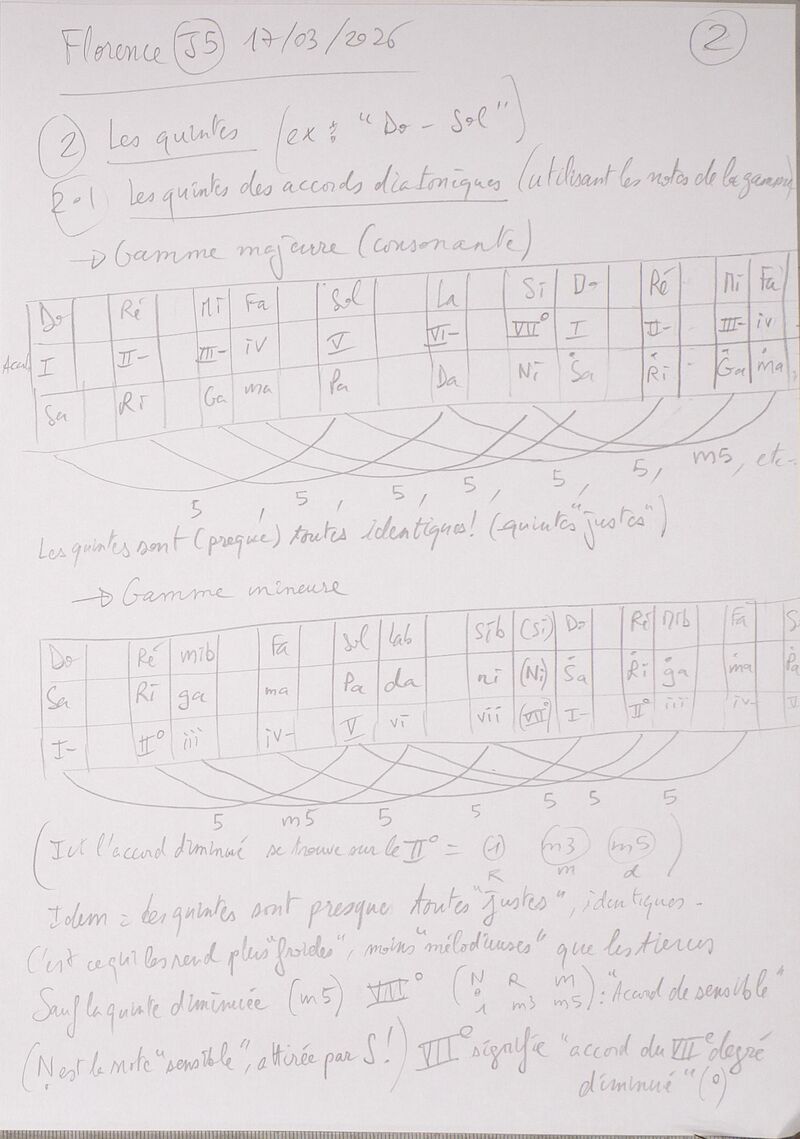 Florence J5 17/03/2026 2
2 Les quintes (ex : "Do - Sol")
2.1 Les quintes des accords diatoniques (utilisant les notes de la gamme)
→ Gamme majeure (consonante)
Do Ré Mi Fa Sol La Si Do Ré Mi Fa
Accord I II- III- IV V VI- VII° I II- III- IV
Sa Ri Ga ma Pa Da Ni Ṡa Ṙi Ġa ṁa
5, 5, 5, 5, 5, 5, m5, etc-
Les quintes sont (presque) toutes identiques! (quintes "justes")
→ Gamme mineure
Do Ré mib Fa Sol Lab Sib (Si) Do Ré Mib Fa S
Sa Ri ga ma Pa da ni (Ni) Ṡa Ṙi ġa ṁa Ṗa
I- II° iii iv- V vi vii (VII°) I- II° iii iv- V
5 m5 5 5 5 5 5
(Ici l'accord diminué se trouve sur le II° = 1 m3 m5)
R m d
Idem = les quintes sont presque toutes "justes", identiques.
C'est ce qui les rend plus "froides", moins "mélodieuses" que les tierces
Sauf la quinte diminuée (m5) VII° (Ṇ R m) : "Accord de sensible"
1 m3 m5
(Ṇ est la note "sensible", attirée par S!) VII° signifie "accord du VII° degré
diminué" (°)